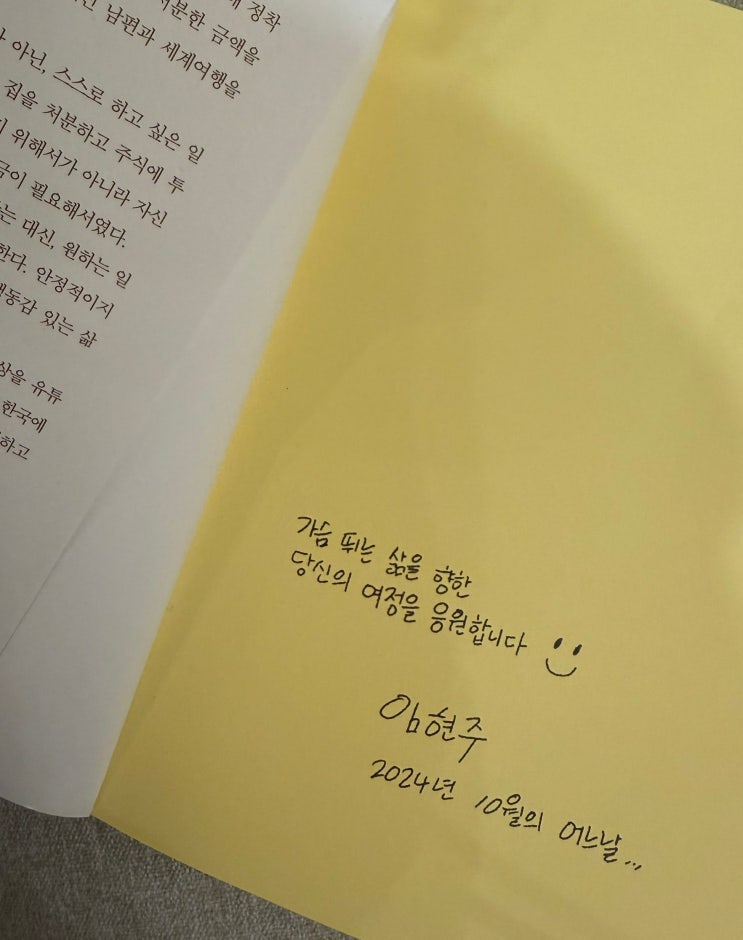 정착
처분한 금액을
남편과 세계여행을
아닌, 스스로 하고 싶은 일
집을 처분하고 주식에 투
위해서가 아니라 자신
필요해서였다.
대신, 원하는 일
한다. 안정적이지
있는 삶
유튜
한국에
하고
가슴 뛰는 삶을 향한
당신의 여정을 응원합니다
임현주
2024년 10월의 어느날...